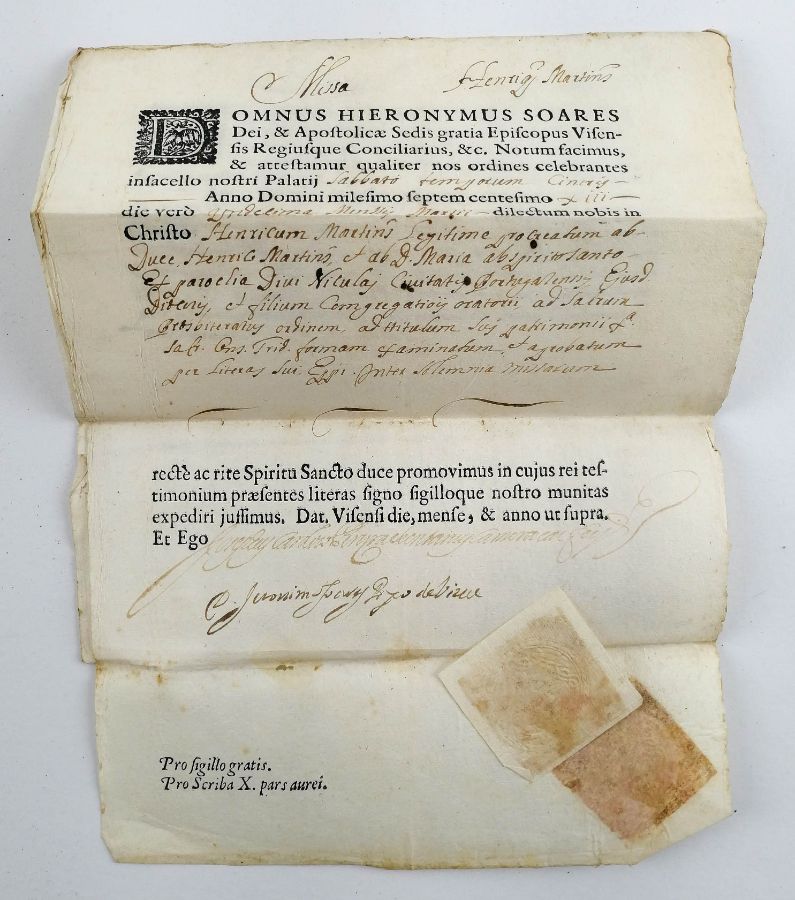 Missa Henriq Martins
DOMNUS HIERONYMUS SOARES
Dei, & Apostolicæ Sedis gratia Episcopus Visen-
sis Regiusque Conciliarius, &c. Notum facimus,
& attestamur qualiter nos ordines celebrantes
insacello nostri Palatij Sabbato temporum
Anno Domini milesimo septem centesimo xiii
die verò undecima Mensis Marti dilectum nobis in
Christo Henricum Martins Legitime procreatum ab
Duce, Henrico Martins, et ab D. Maria ab spirito santo
Et paroelia Divi Niculaj Civitatis Portugalensis Ejusd.
et filium Congregationis oratorii ad Sacrum
Presbiteratus ordinem, ad titulum sui patrimonii
Sacr. Con. Trid. formam examinatum, et aprobatum
per Literas sui Inter solemnia missarum
rectè ac rite Spiritu Sancto duce promovimus in cujus rei tes-
timonium præsentes literas signo sigilloque nostro munitas
expediri jussimus. Dat. Visensi die, mense, & anno ut supra.
Et Ego
Jeronimo Soares Bpo de Viseu
Pro sigillo gratis.
Pro Scriba X. pars aurei.